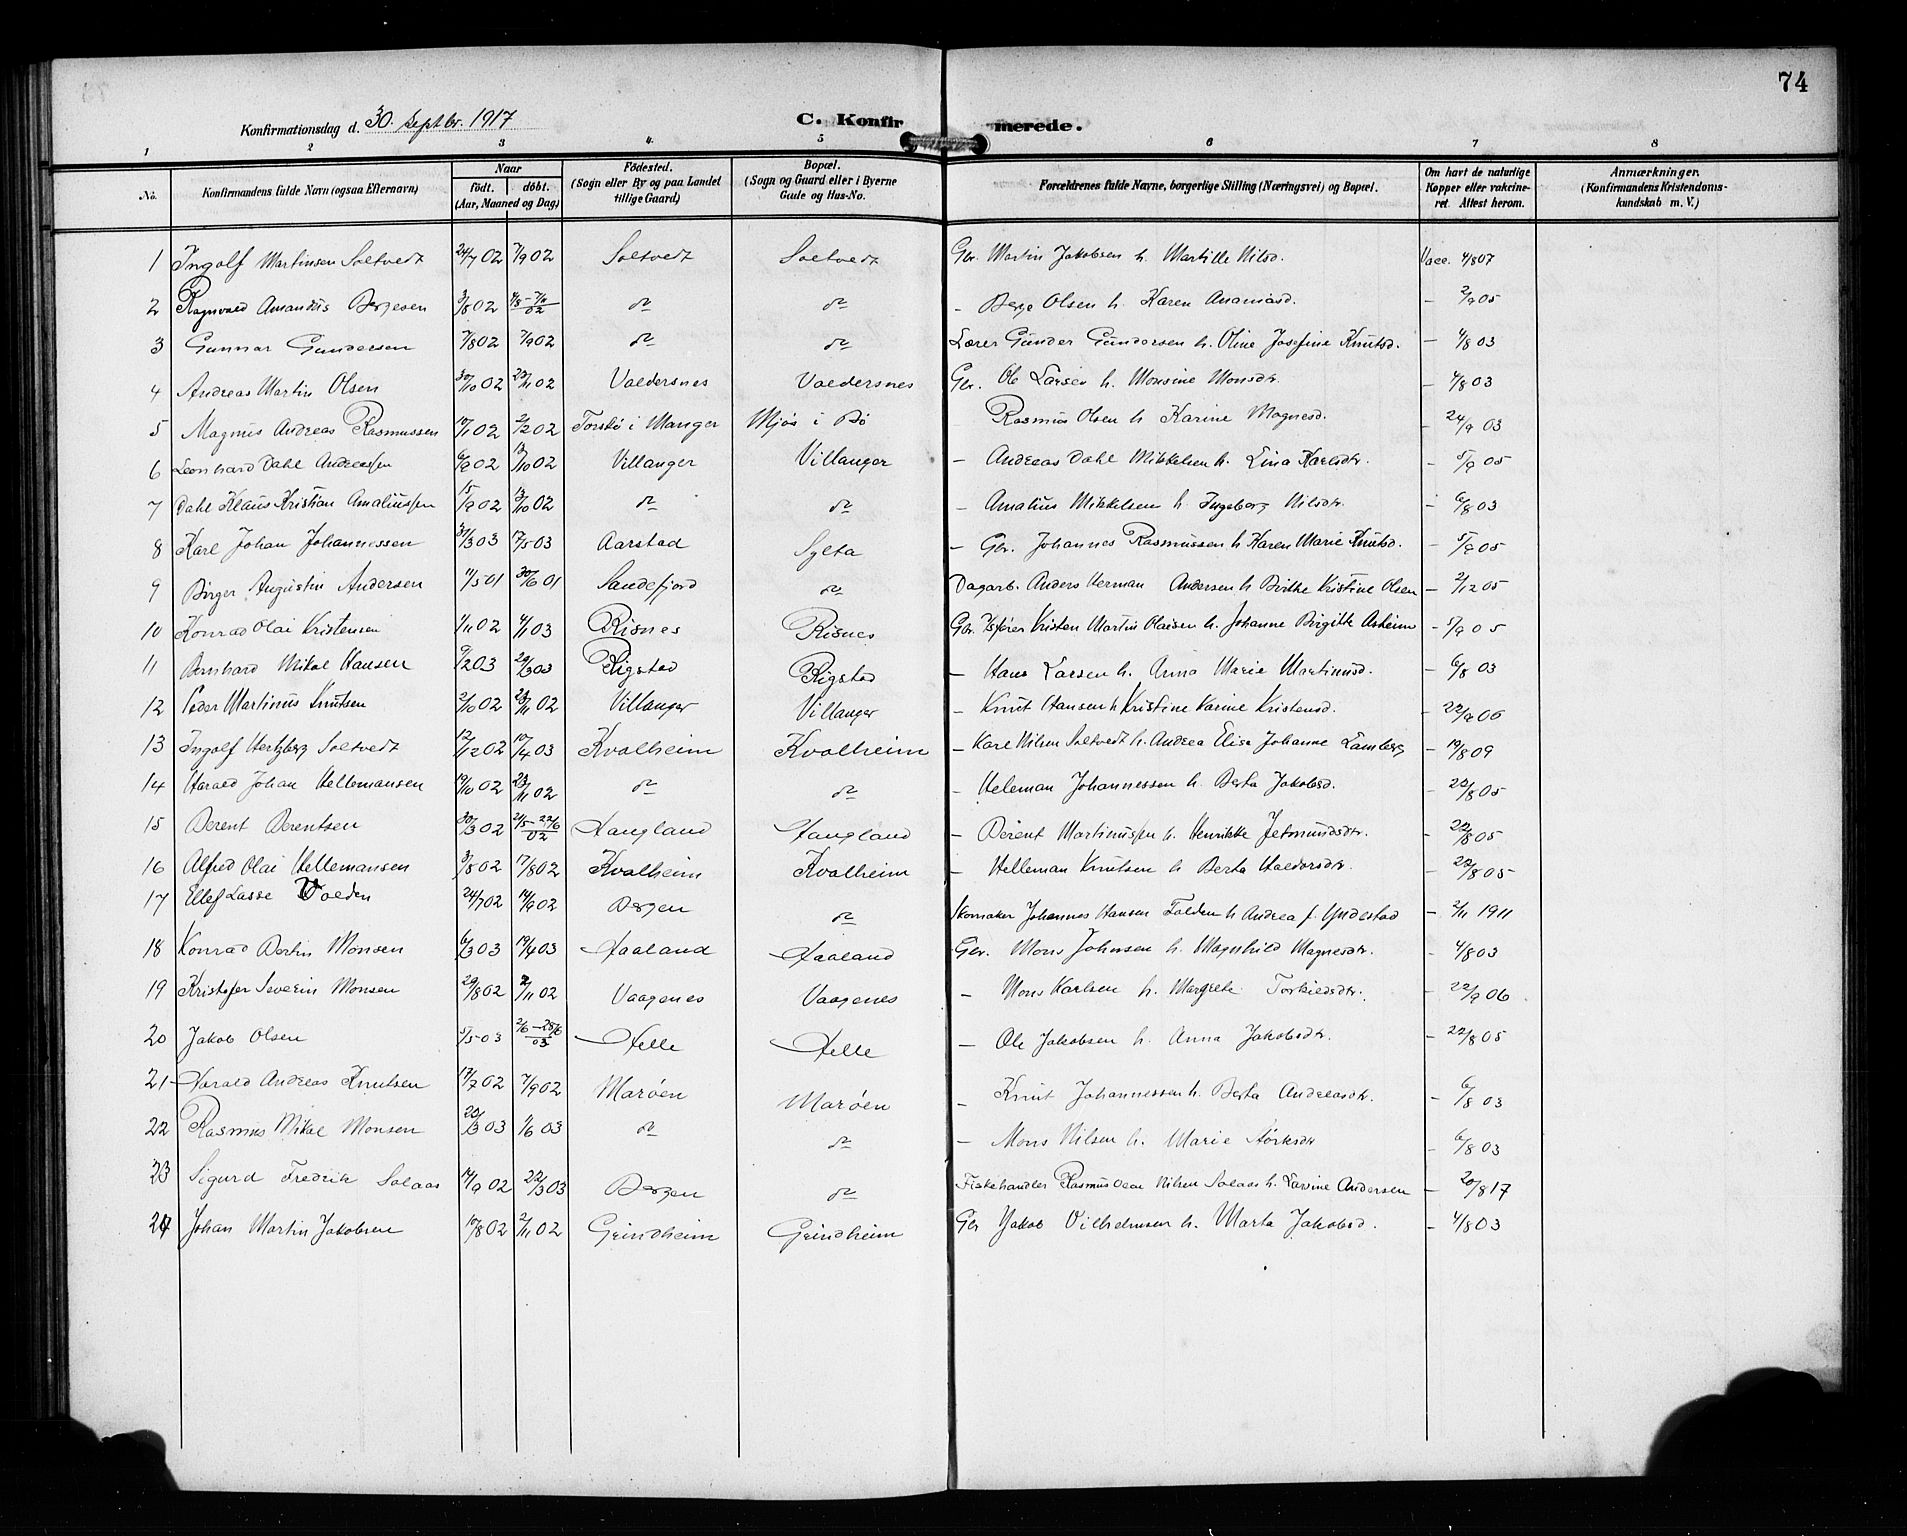 74
Konfirmationsdag d. 30. Septbr. 1917
C. Konfirmerede.
1 2 3 4. 5 6 7 8
No. Konfirmandens fulde Navn (ogsaa Efternavn) Naar født. døbt. (Aar, Maaned og Dag) Födested. (Sogn eller By og paa Landet tillige Gaard) Bopæl. (Sogn og Gaard eller i Byerne Gade og Hus-No. Forældrenes fulde Navne, borgerlige Stilling (Næringsvei) og Bopæl. Om havt de naturlige Kopper eller vakcineret. Attest herom. Anmærkninger. (Konfirmandens Kristendomskundskab m. V.)
1 Ingolf Martinsen Soltvedt 24/7 02 7/9 02 Soltvedt Soltvedt Gbr. Martin Jakobsen h. Martille Nilsd. Vacc. 4/8 07
2 Ragnvald Amandus Bergesen 3/8 02 do do - Berge Olsen h. Karen Ananiasd. - 2/9 05
3 Gunnar Gundersen 7/8 02 7/9 02 do do Lærer Gunder Gundersen h. Oline Josefine Knutsd. - 4/8 03
4 Andreas Martin Olsen 30/10 02 23/11 02 Valdersnes Valdersnes Gbr. Ole Larsen h. Monsine Monsdtr. - 4/8 03
5 Magnus Andreas Rasmussen 19/1 02 2/2 02 Toskø i Manger Mjøs i Bø Rasmus Olsen h Karine Magnesd. - 24/9 03
6 Leonhard Dahl Andreassen 6/9 02 12/10 02 Villanger Villanger - Andreas Dahl Mikkelsen h. Lina Karlsdtr. - 5/9 05
7 Dahl Klaus Kristian Amaliussen 15/9 02 12/10 02 do do - Amalius Mikkelsen h. Ingeborg Nilsdtr. - 6/8 03
8 Karl Johan Johannessen 31/3 03 17/5 03 Aarstad Sylta - Gbr. Johannes Rasmussen h Karen Marie Knutsd. - 5/9 05
9 Birger Augustin Andersen 11/5 01 30/6 01 Sandefjord do Dagarb. Anders Herman Andersen h Birthe Kristine Olsen - 2/12 05
10 Konrad Olai Kristensen 1/11 02 4/1 03 Risnes Risnes Gbr. Kristen Martin Olaisen h. Johanne Birgitte Asheim - 5/9 05
11 Bernhard Mikal Hansen 9/2 03 29/3 03 Rigstad Rigstad - Hans Larsen h. Anna Marie Martinusd. - 6/8 03
12 Peder Martinus Knutsen 2/10 02 23/11 02 Villanger Villanger - Knut Hansen h Kristine Karine Kristensd. - 22/9 06
13 Ingolf Hertzberg Soltvedt 12/12 02 10/4 03 Kvalheim Kvalheim - Karl Nilsen Soltvedt h. Andrea Elisa Johanne Lamberg - 19/8 09
14 Harald Johan Hellemansen 19/10 02 23/11 02 do do - Heleman Johannessen h. Berta Jakobsd. - 22/8 05
15 Berent Berentsen 30/3 02 Hangland Hangland - Berent Martinussen h. Henrikke Jetmundsdtr. - 22/8 05
16 Alfred Olai Hellemansen 3/8 02 17/8 02 Kvalheim Kvalheim - Helleman Knutsen h Berta Haldorsdtr. - 22/8 05
17 Ellef Lasse Volden 24/7 02 14/9 02 Bergen do Skomaker Johannes Hansen Folden h Andrea f. Yndestad - 2/11 1911
18 Konrad Bertin Monsen 6/3 03 19/4 03 Haaland Haaland Gbr. Mons Johnsen h. Magnhild Magnesdtr. - 4/8 03
19 Kristofer Severin Monsen 29/8 02 2/11 02 Vaagenes Vaagenes - Mons Karlsen h. Margrete Torkildsdtr. - 22/9 06
20 Jakob Olsen 5/5 03 Helle Helle - Ole Jakobsen h. Anna Jakobsdtr. - 22/8 05
21 Harald Andreas Knutsen 17/7 02 7/9 02 Marøen Marøen - Knut Johannessen h. Berta Andreasdtr. - 6/8 03
22 Rasmus Mikal Monsen 20/3 03 1/6 03 do do - Mons Nilsen h. Marie Størksdtr - 6/8 03
23 Sigurd Fredrik Solaas 14/9 02 22/3 03 Bergen do Fiskehandler Rasmus Olai Nilsen Solaas h. Lavine Andersen - 20/8 17
24 Johan Martin Jakobsen 10/8 02 2/11 02 Grindheim Grindheim Gbr Jakob Vilhelmsen h. Marta Jakobsd. - 4/8 03